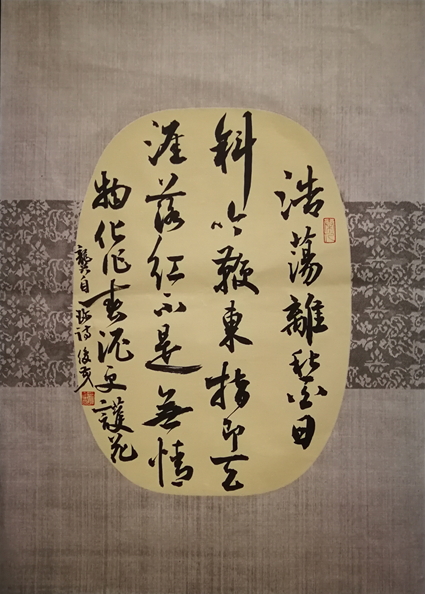 浩蕩離愁白日
斜吟鞭東指即天
涯落红不是無情
物化作春泥更護花
龔自珍詩